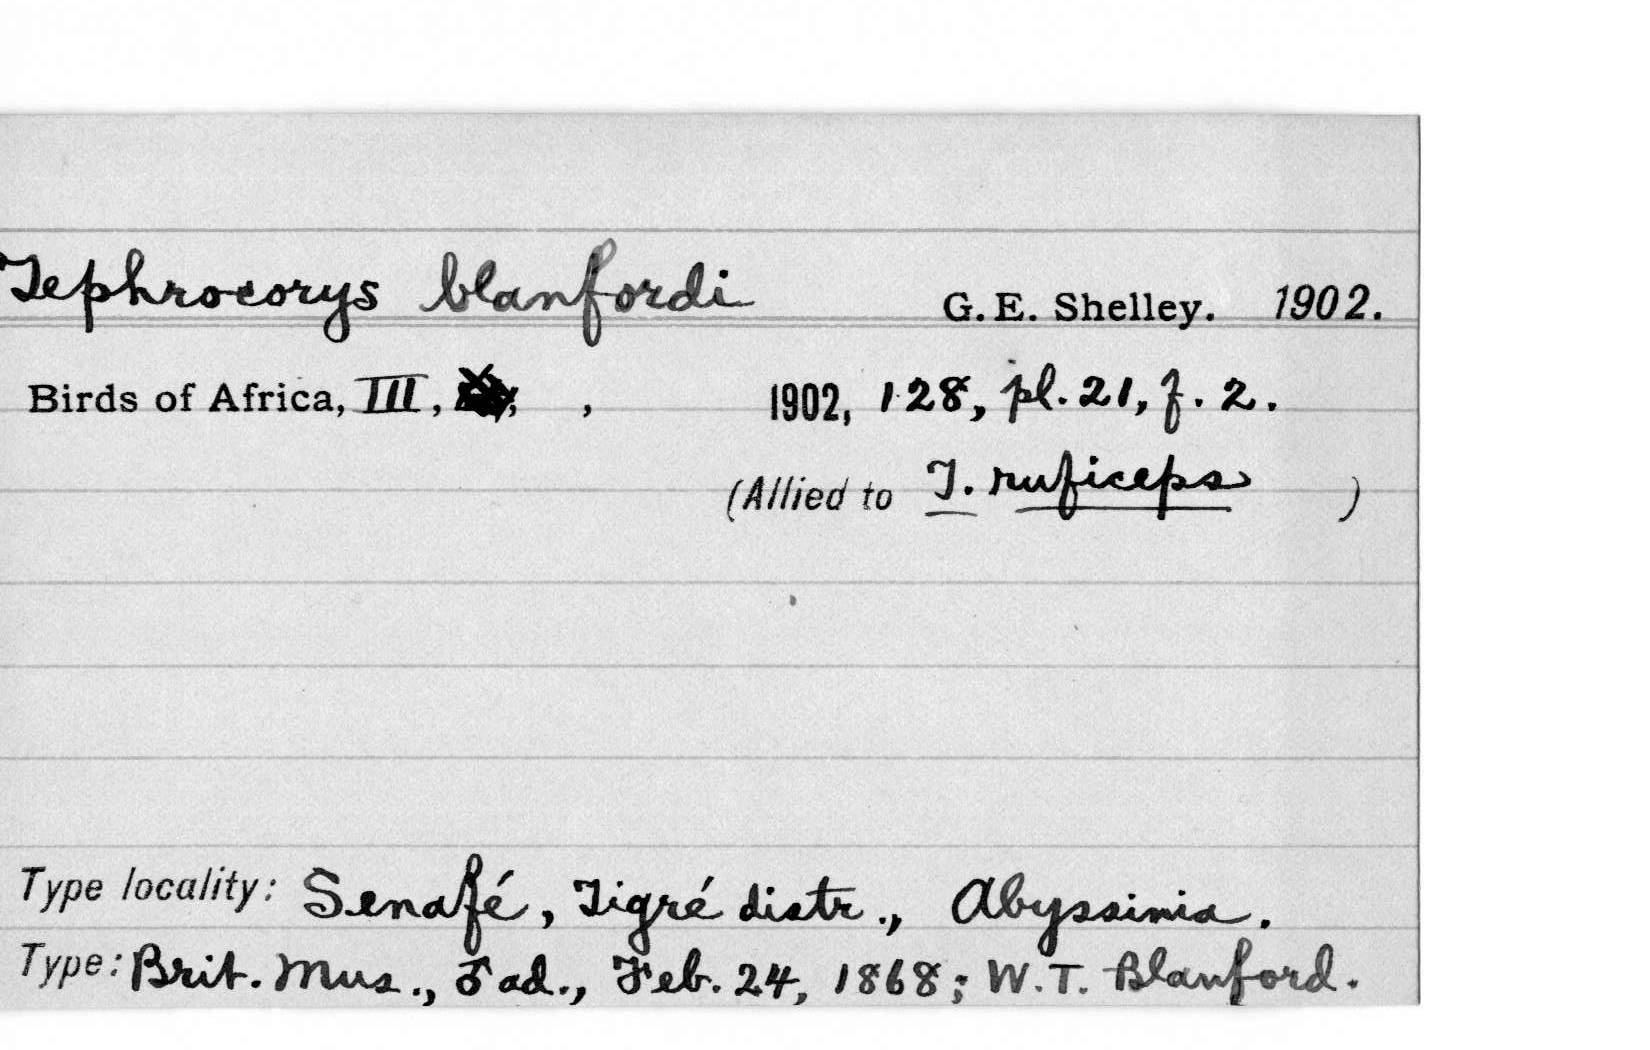 Tephrocorys blanfordi G. E. Shelley. 1902.
Birds of Africa, III, , 1902, 128, pl. 21, f. 2.
(Allied to T. ruficeps )
Type locality: Senafé, Tigré distr., Abyssinia.
Type: Brit. Mus., ad., Feb. 24, 1868; W. T. Blanford.